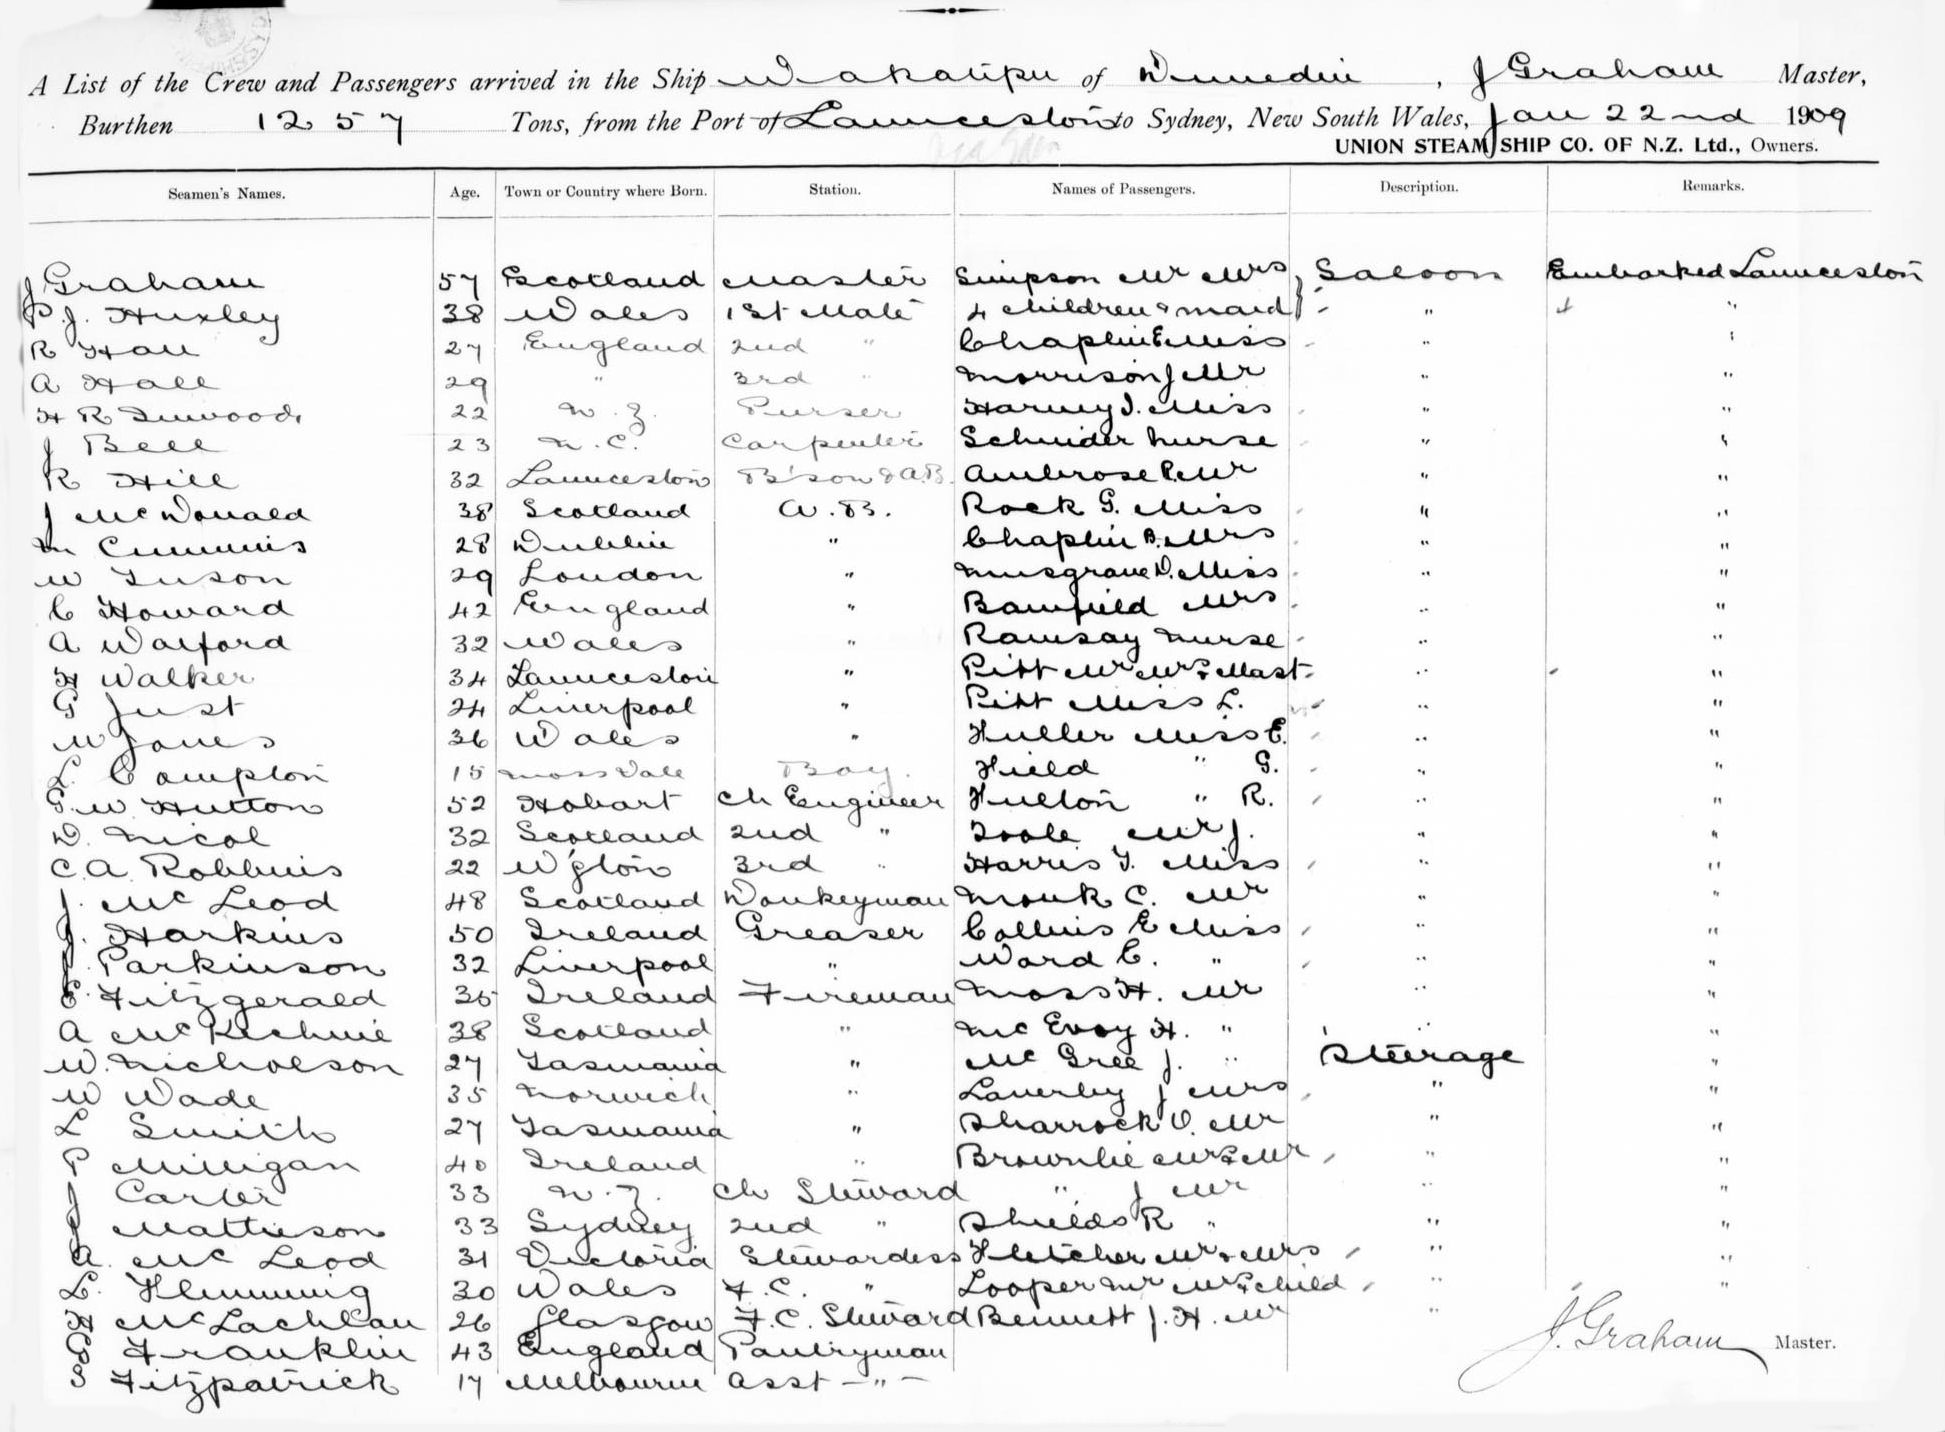 A List of the Crew and Passengers arrived in the Ship Wakatipu of Dunedin, J Graham Master,
Burthen 1257 Tons, from the Port of Launceston to Sydney, New South Wales, Jan 22nd 1909
UNION STEAM SHIP CO. OF N.Z. Ltd., Owners.
Seamen's Names. Age. Town or Country where Born. Station. Names of Passengers. Description. Remarks.
J Graham 57 Scotland Master Simpson Mr Mrs } Saloon Embarked Launceston
P. J. Huxley 38 Wales 1st Mate 4 children & maid } " "
R Hall 27 England 2nd " Chaplin E Miss " "
A Hall 29 " 3rd " Morrison J Mr " "
H R Inwood 22 N.Z. Purser Harvey I. Miss " "
J Bell 23 N.C. Carpenter Schnider Nurse " "
R Hill 32 Launceston B'son & A.B. Ambrose P. Mr " "
J McDonald 38 Scotland A.B. Rock G. Miss " "
M Cummins 28 Dublin " Chaplin B. Mrs " "
W Tuson 29 London " Musgrave D. Miss " "
C Howard 42 England " Bamfield Mrs " "
A Walford 32 Wales " Ramsay Nurse " "
H Walker 34 Launceston " Pitt Mr Mrs & Mast " "
G Just 24 Liverpool " Pitt Miss L. " "
W Jones 36 Wales " Fuller Miss E. " "
L. Compton 15 Moss Vale Boy. Field " G. " "
G. W Hutton 52 Hobart Ch Engineer Fulton " R. " "
D. Nicol 32 Scotland 2nd " Toole Mr J. " "
C. A. Robbins 22 W'gton 3rd " Harris T. Miss " "
J. McLeod 48 Scotland Donkeyman Monk C. Mr " "
J. Harkins 50 Ireland Greaser Collins E Miss " "
J. Parkinson 32 Liverpool " Ward C. " " "
E. Fitzgerald 35 Ireland Fireman Moss H. Mr " "
A McKechnie 38 Scotland " McEvoy H. " " "
W. Nicholson 27 Tasmania " McGree J. " Steerage "
W Wade 35 Norwich " Laverby J Mrs " "
L Smith 27 Tasmania " Sharrock V. Mr " "
P Milligan 40 Ireland " Brownlie Mrs & Mr " "
J Carter 33 N.Z. Ch Steward " J Mr " "
J Mattieson 33 Sydney 2nd " Shields R " " "
A. McLeod 31 Victoria Stewardess Fletcher Mr & Mrs " "
L. Flemming 30 Wales F.C. " Looper Mr Mrs & child " "
H McLachlan 26 Glasgow F.C. Steward Bennett J. H. Mr "
P Franklin 43 England Pantryman
S Fitzpatrick 17 Melbourne Asst — " —
J. Graham Master.